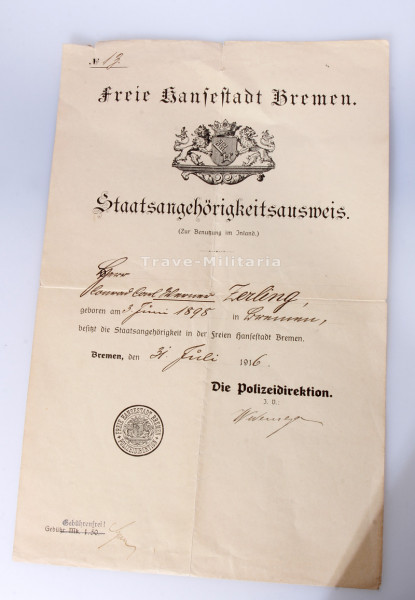 № 19.
Freie Hansestadt Bremen.
Staatsangehörigkeitsausweis.
(Zur Benutzung im Inland.)
Trave-Militaria
Herr
Conrad Carl Werner Zerling,
geboren am 3 Juni 1898 in Bremen,
besitzt die Staatsangehörigkeit in der Freien Hansestadt Bremen.
Bremen, den 31 Juli 1916
Die Polizeidirektion.
J. V.
FREIE HANSESTADT BREMEN
POLIZEIDIREKTION
Gebührenfrei!
Gebühr Mk. 1.50